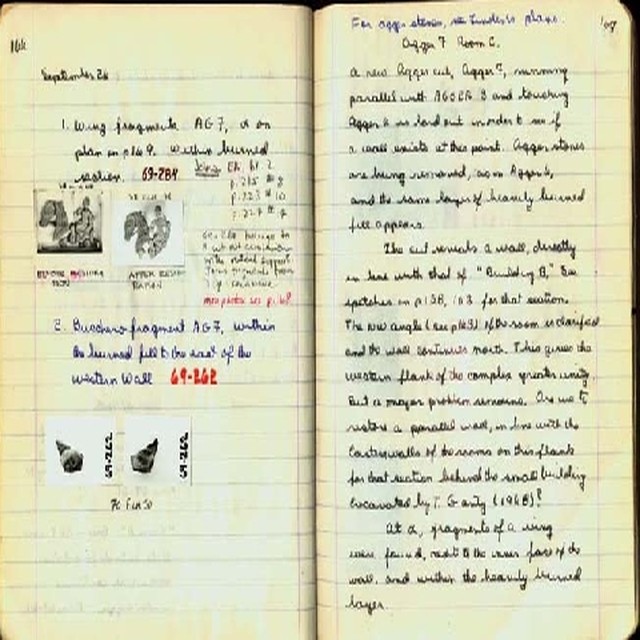 166
September 26
1. Wing fragments AG 7, α on
plan on p 169. Within burned
section. 69-284
BEFORE
AFTER
more photos see p. 168
2. Bucchero fragment AG 7, within
the burned fill to the east of the
western wall 69-262
69-262
69-262
For agger stones, see Linders's plans.
167
Agger 7 Room C.
A new Agger cut, Agger 7, running
parallel with AGGER 3 and touching
Agger 6 is laid out in order to see if
a wall exists at this point. Agger stones
are being removed, as in Agger 6,
and the same layer of heavily burned
fill appears.
The cut reveals a wall, directly
in line with that of "Building B," See
sketches on p 158, 163 for that section.
The NW angle (see p163) of the room is clarified
and the wall continues north. This gives the
western flank of the complex greater unity.
But a major problem remains. Are we to
restore a parallel wall, in line with the
Easter walls of the rooms on this flank
for that section behind the small building
excavated by T. Gantz (1968)?
At α, fragments of a wing
were found, next to the inner face of the
wall, and within the heavily burned
layer.